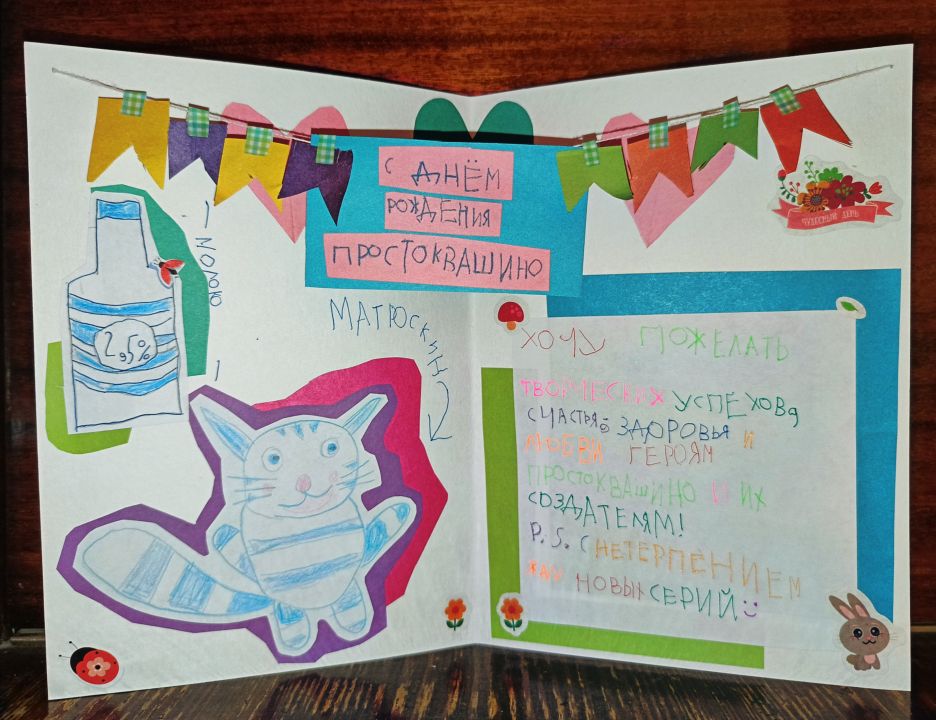 С ДНЁМ
РОЖДЕНИЯ
ПРОСТОКВАШИНО
ЧУДЕСНЫЙ ДЕНЬ
МОЛОКО
2,5%
МАТРОСКИН
ХОЧУ ПОЖЕЛАТЬ
ТВОРЧЕСКИХ УСПЕХОВ,
СЧАСТЬЯ, ЗДОРОВЬЯ И
ЛЮБВИ ГЕРОЯМ
ПРОСТОКВАШИНО И ИХ
СОЗДАТЕЛЯМ!
P.S. С НЕТЕРПЕНИЕМ
ЖДУ НОВЫХ СЕРИЙ